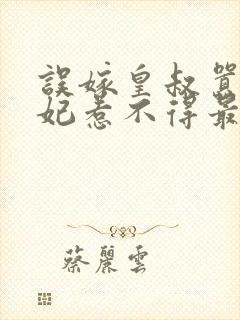 誤嫁皇叔
妃惹不得最
蔡麗雲